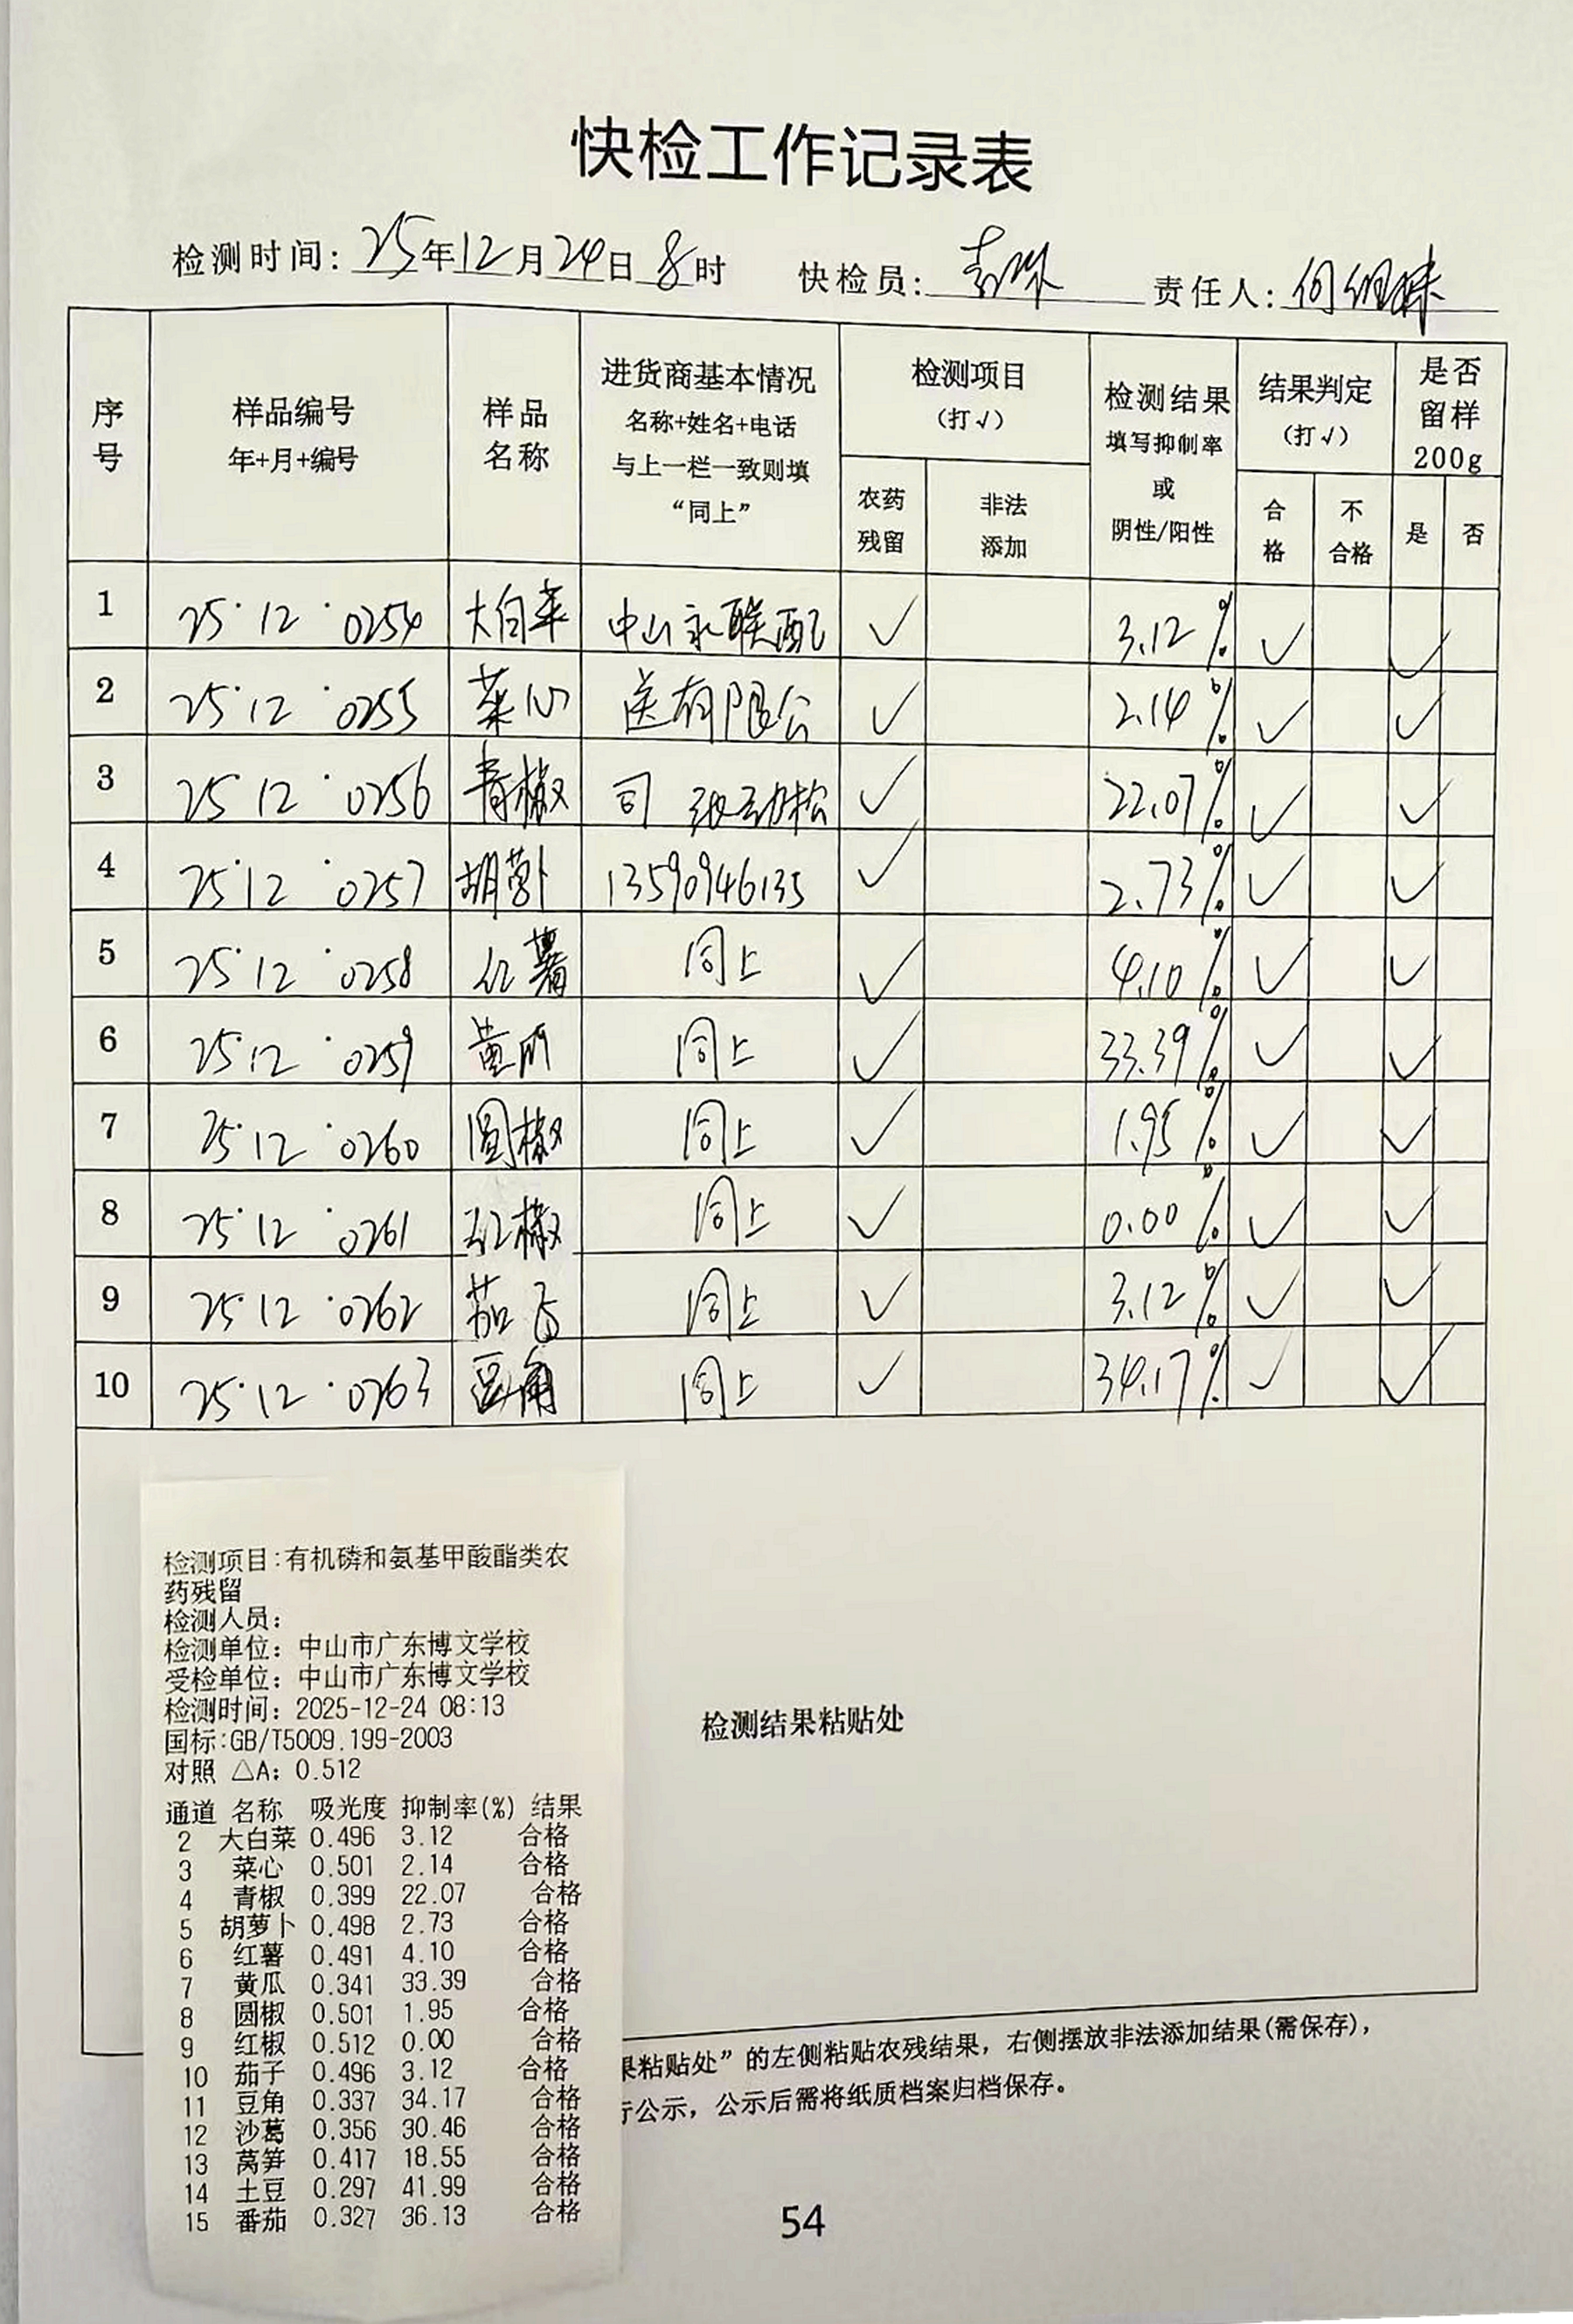 快检工作记录表
检测时间：25年12月24日8时 快检员： 责任人：何细妹
序号 样品编号 年+月+编号 样品名称 进货商基本情况 名称+姓名+电话 与上一栏一致则填“同上” 检测项目（打√） 农药残留 非法添加 检测结果 填写抑制率或阴性/阳性 结果判定（打√） 合格 不合格 是否留样200g 是 否
1 25·12·0254 大白菜 中山永联配 ✓ 3.12% ✓ ✓
2 25·12·0255 菜心 送有限公 ✓ 2.14% ✓ ✓
3 25 12·0256 青椒 司 张劲松 ✓ 22.07% ✓ ✓
4 25·12·0257 胡萝卜 13590946135 ✓ 2.73% ✓ ✓
5 25·12·0258 红薯 同上 ✓ 4.10% ✓ ✓
6 25·12·0259 黄瓜 同上 ✓ 33.39% ✓ ✓
7 25·12·0260 圆椒 同上 ✓ 1.95% ✓ ✓
8 25·12·0261 红椒 同上 ✓ 0.00% ✓ ✓
9 25·12·0262 茄子 同上 ✓ 3.12% ✓ ✓
10 25·12·0263 豆角 同上 ✓ 34.17% ✓ ✓
检测项目:有机磷和氨基甲酸酯类农
药残留
检测人员：
检测单位：中山市广东博文学校
受检单位：中山市广东博文学校
检测时间：2025-12-24 08:13
国标:GB/T5009.199-2003
对照 △A：0.512
通道 名称 吸光度 抑制率(%) 结果
2 大白菜 0.496 3.12 合格
3 菜心 0.501 2.14 合格
4 青椒 0.399 22.07 合格
5 胡萝卜 0.498 2.73 合格
6 红薯 0.491 4.10 合格
7 黄瓜 0.341 33.39 合格
8 圆椒 0.501 1.95 合格
9 红椒 0.512 0.00 合格
10 茄子 0.496 3.12 合格
11 豆角 0.337 34.17 合格
12 沙葛 0.356 30.46 合格
13 莴笋 0.417 18.55 合格
14 土豆 0.297 41.99 合格
15 番茄 0.327 36.13 合格
检测结果粘贴处
果粘贴处”的左侧粘贴农残结果，右侧摆放非法添加结果(需保存)，
行公示，公示后需将纸质档案归档保存。
54